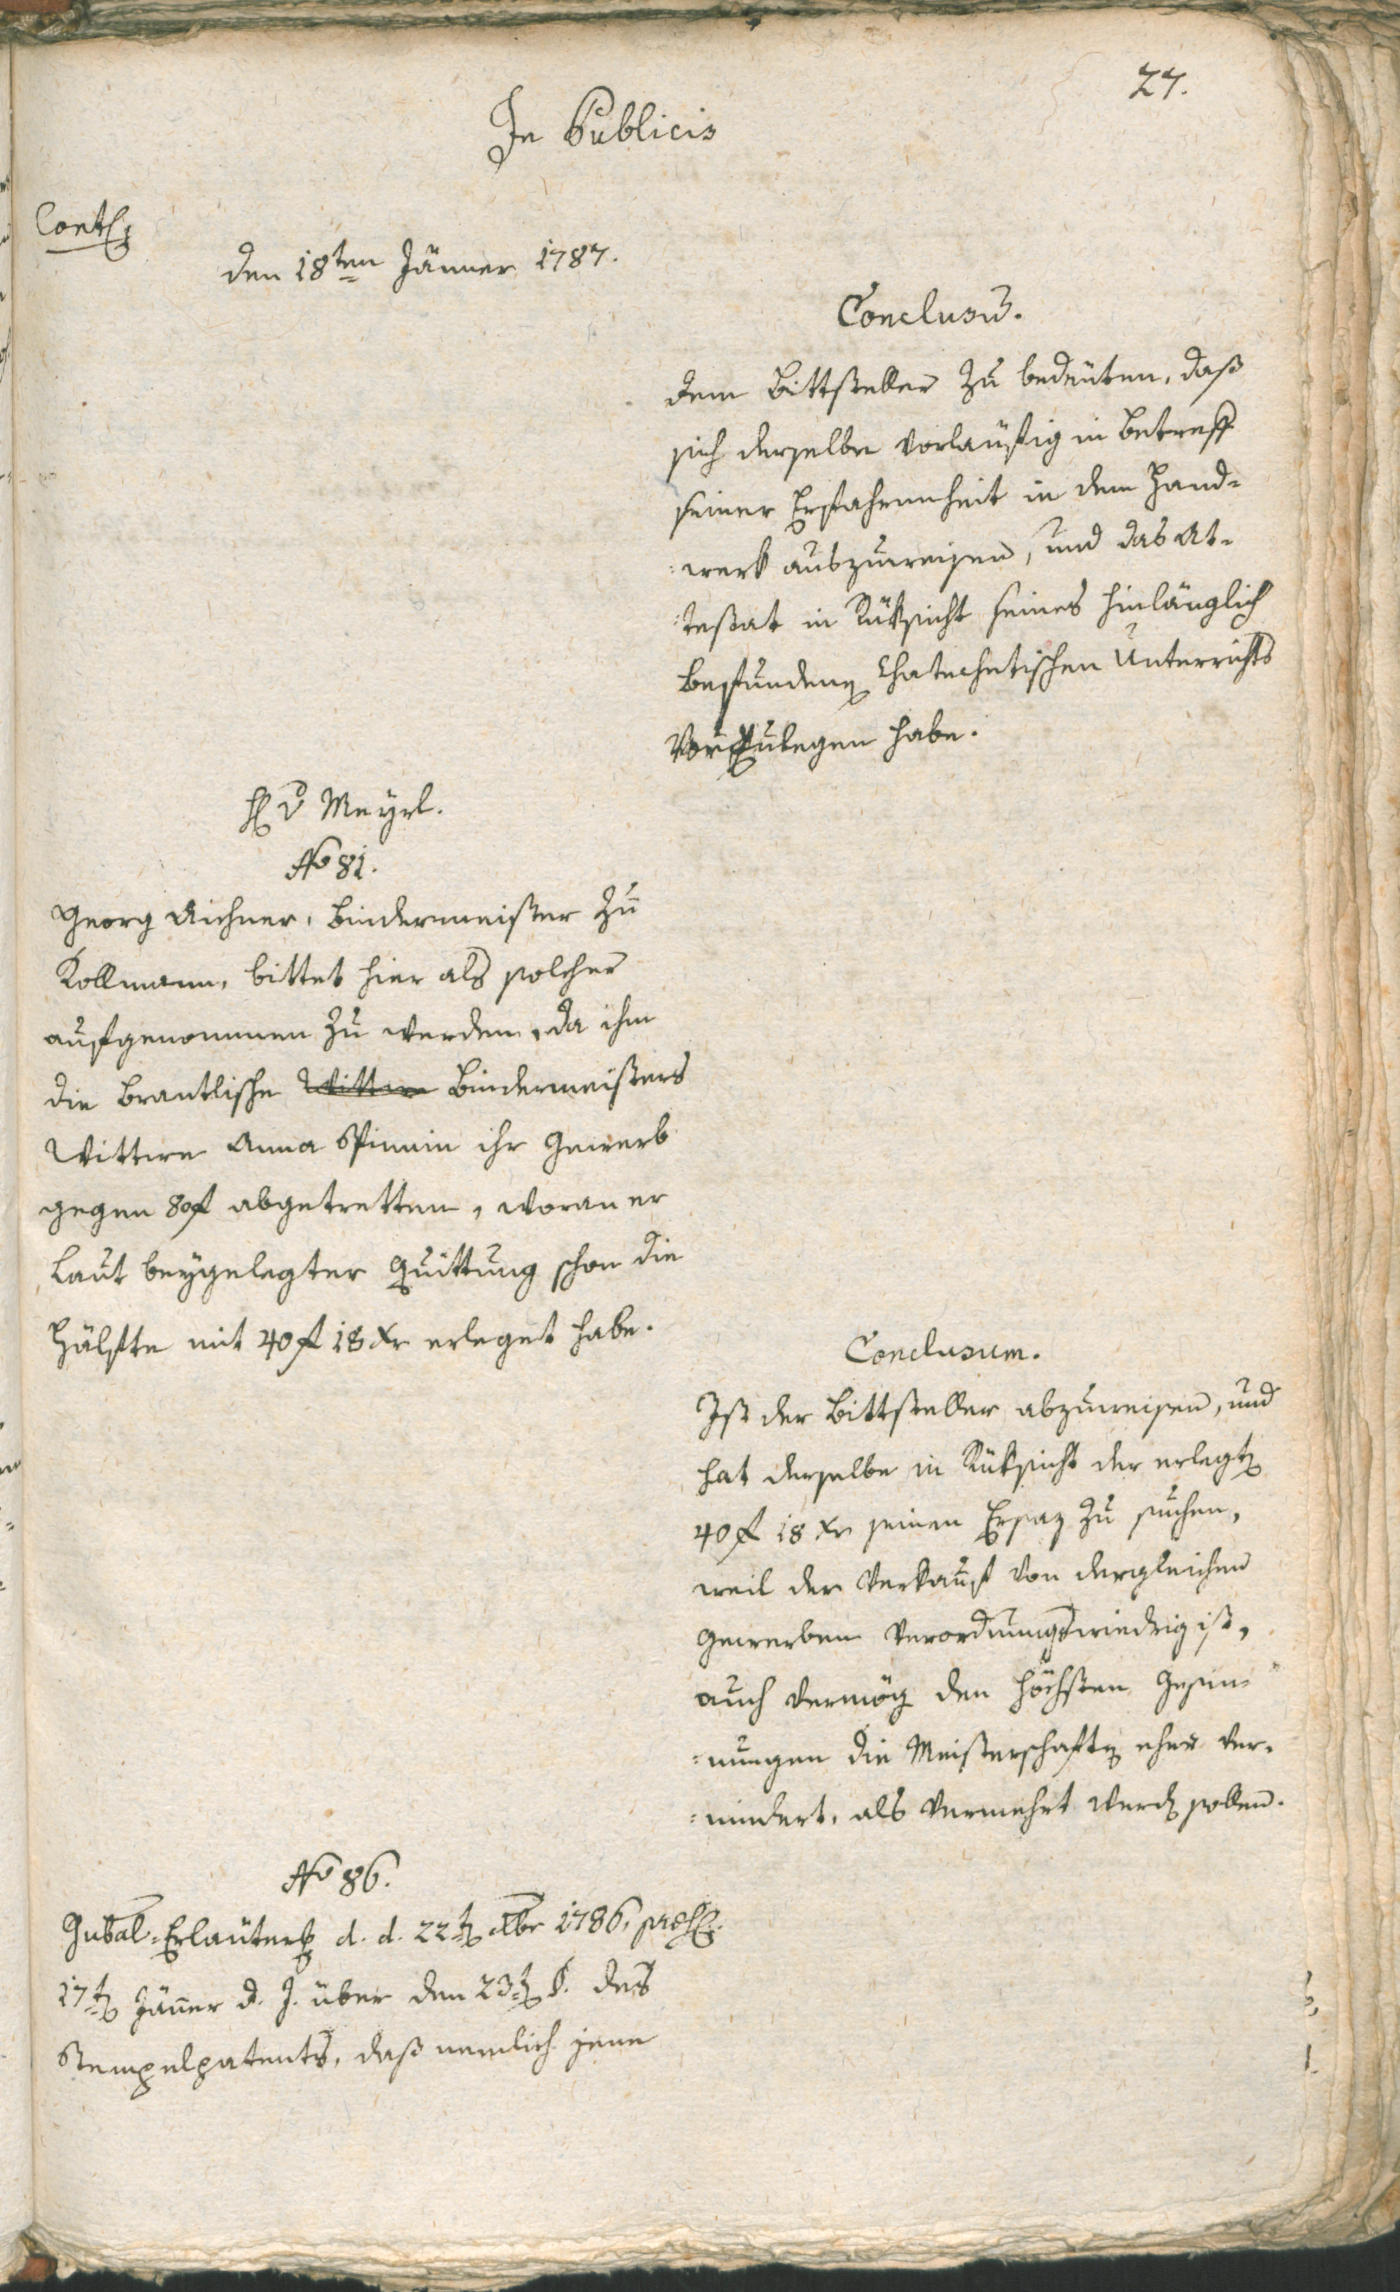 27.
In Publicis
den 18ten Jänner 1787.
Conclusum.
dem Bittsteller zu bedeüten, daß
sich derselbe vorläufig in Betreff
seiner Erfahrenheit in dem Hand-
werk auszuweisen, und das At-
:testat in Rüksicht seines hinlänglich
befundenen Chatechetischen Unterrichts
vorzulegen habe.
H v Meyrl.
No 81.
Georg Aichner, Bindermeister zu
Kollmann, bittet hier als solcher
aufgenommen zu werden, da ihm
die Brantlische Wittwe Bindermeisters
Wittwe Anna ihr Gewerb
gegen 80 f abgetretten, woran er
laut beygelegter Quittung schon die
Hälfte mit 40 f 18 xr erleget habe.
Conclusum.
Ist der Bittsteller abzuweisen, und
hat derselbe in Rüksicht der erlegten
40 f 18 xr seinen Ersaz zu suchen,
weil der Verkauf von dergleichen
Gewerben verordnungswiedrig ist,
auch vermög den höchsten Gesin-
:nungen die Meisterschaften eher ver-
:mindert, als vermehrt werden sollen.
No 86.
Gubal-Erläuterung d. d. 22ten Xbr 1786, praes.
17ten Jänner d. J. über den 23ten §. des
Stempelpatents, daß nemlich jene